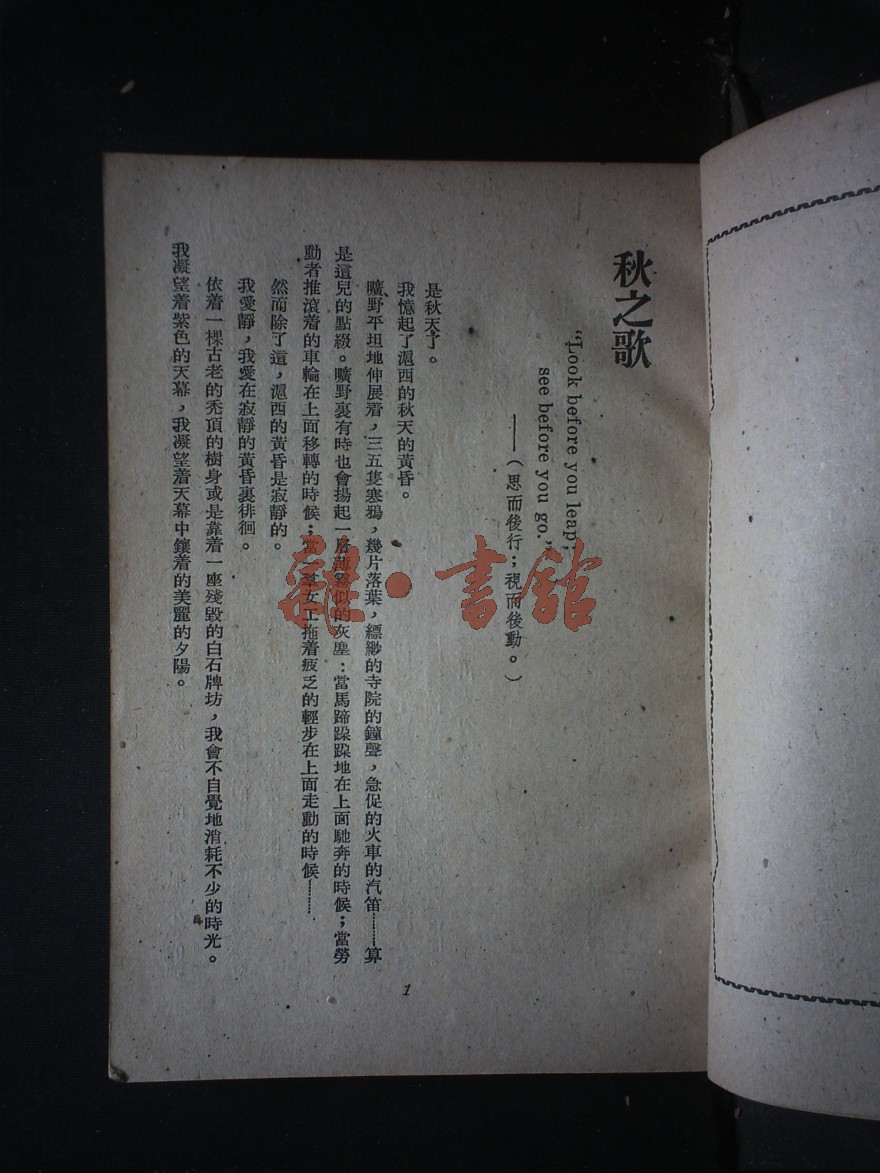 秋之歌
“Look before you leap;
see before you go.”
——（思而後行；視而後動。）
是秋天了。
我憶起了滬西的秋天的黃昏。
曠野平坦地伸展着，三五隻寒鴉，幾片落葉，縹緲的寺院的鐘聲，急促的火車的汽笛……算
是這兒的點綴。曠野裏有時也會揚起一層薄霧似的灰塵：當馬蹄跺跺地在上面馳奔的時候；當勞
動者推滾着的車輪在上面移轉的時候；當一羣女工拖着疲乏的輕步在上面走動的時候……
然而除了這，滬西的黃昏是寂靜的。
我愛靜，我愛在寂靜的黃昏裏徘徊。
依着一棵古老的禿頂的樹身或是靠着一座殘毀的白石牌坊，我會不自覺地消耗不少的時光。
我凝望着紫色的天幕，我凝望着天幕中鑲着的美麗的夕陽。
1
雜·書館